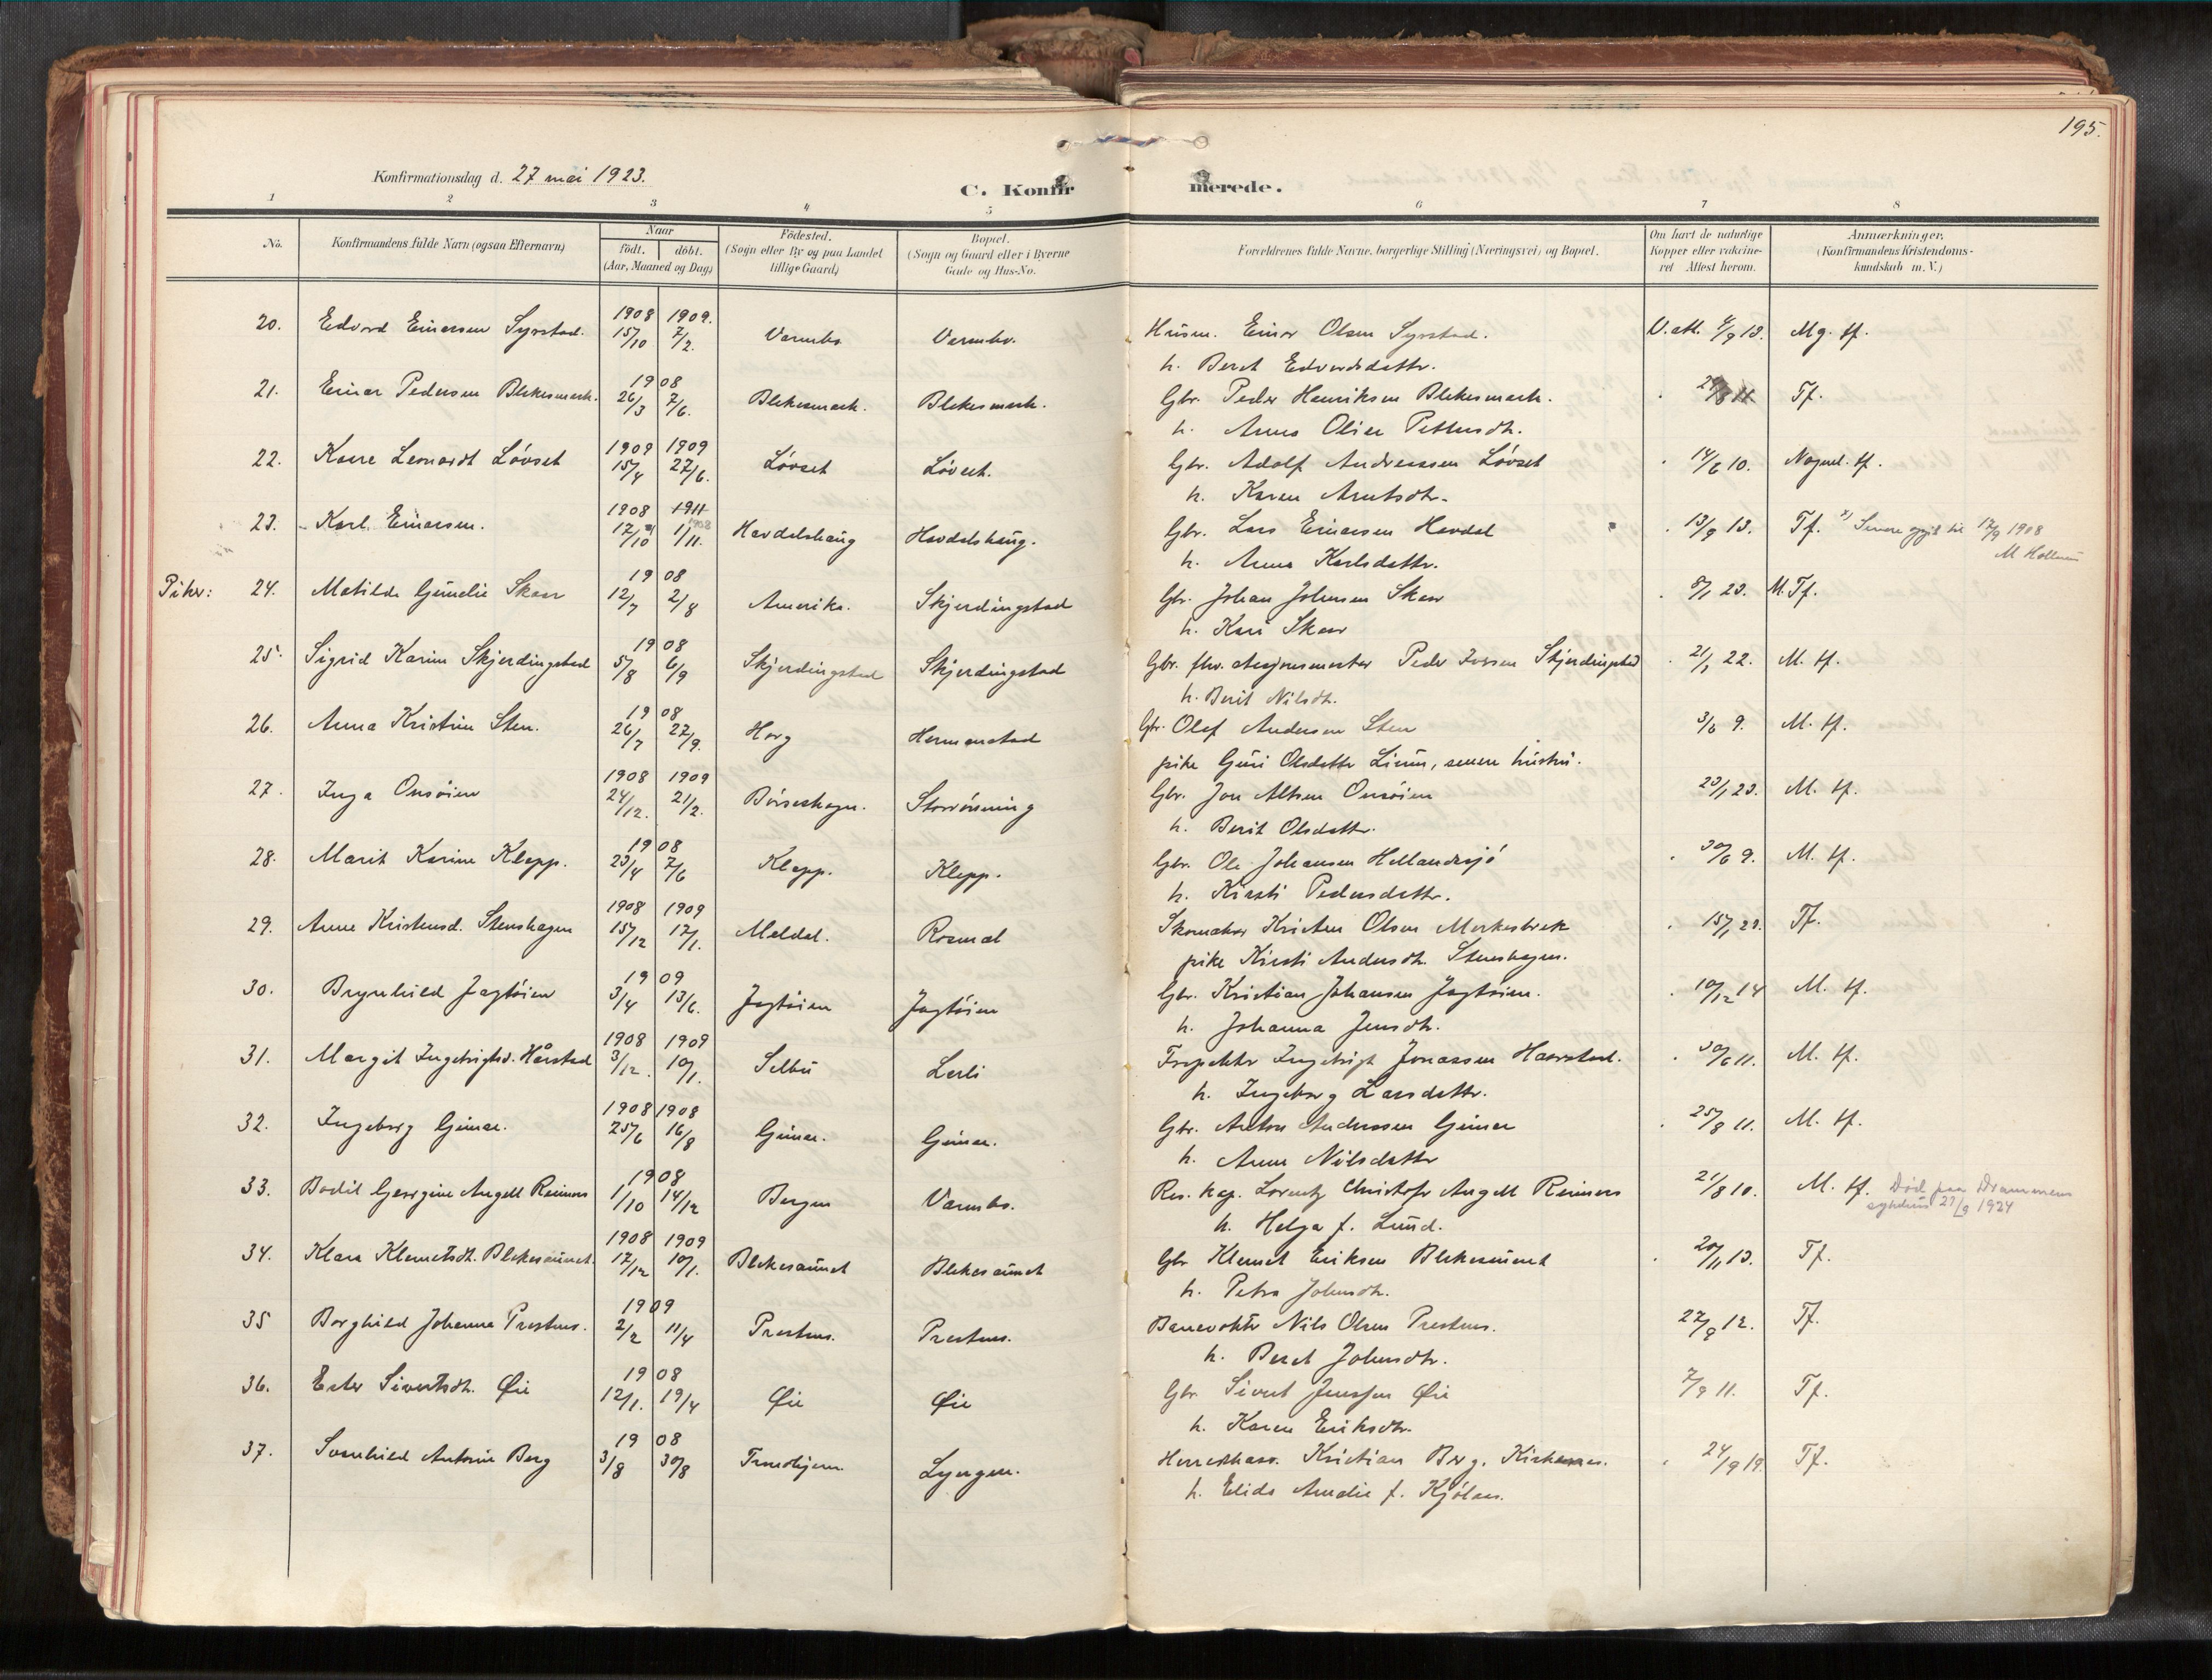 195.
Konfirmationsdag d. 27 mai 1923.
C. Konfirmerede.
1 2 3 4 5 6 7 8
No.
Konfirmandens fulde Navn (ogsaa Efternavn)
Naar
født. døbt.
(Aar, Maaned og Dag)
Fødested.
(Sogn eller By og paa Landet
tillige Gaard)
Bopæl.
(Sogn og Gaard eller i Byerne
Gade og Hus-No.
Forældrenes fulde Navne, borgerlige Stilling (Næringsvei) og Bopæl.
Om havt de naturlige
Kopper eller vakcine-
ret Attest herom.
Anmærkninger.
(Konfirmandens Kristendoms-
kundskab m. V.)
20. Edvard Einarsen Syrstad. 1908 15/10 1909. 7/2. Varmbo Varmbo. Husm. Einar Olsen Syrstad. V. att. 4/9 13. Mg. tf.
h. Beret Edvardsdattr.
21. Einar Pedersen Blekesmark. 1908 26/3 7/6. Blekesmark. Blekesmark. Gbr. Peder Henriksen Blekesmark. Tf.
h. Anna Oline Pettersdtr.
22. Kaare Leonardt Løvset 1909 15/4 1909 27/6. Løvset Løvset. Gbr. Adolf Andreassen Løvset 14/6 10. Noget tf.
h. Karen Arntsdtr.
23. Karl Einarsen. 1908 17/10 1911 1908 1/11. Havdalshaug Havdalshaug. Gbr. Lars Einarsen Havdal 13/9 13. Tf. x) Senere opgit til 17/9 1908
h. Anna Karlsdattr.
Piker: 24. Matilde Gunelie Skaar 1908 12/7 2/8 Amerika. Skjerdingstad Gbr. Johan Johnsen Skaar 8/1 23. M. Tf.
h. Kari Skaar
25. Sigrid Karine Skjerdingstad 1908 5/8 6/9 Skjerdingstad Skjerdingstad Gbr. fhv. stasjonsmester Peder Iversen Skjerdingstad 21/1 22. M. tf.
h. Berit Nilsdtr.
26. Anna Kristine Sten. 1908 26/7 27/9. Horg Hermanstad Gbr. Olaf Andersen Sten 3/6 9. M. tf.
pike Guri Olsdatter Lium, senere hustru.
27. Inga Onsøien 1908 24/12. 1909 21/2. Børseskogn. Storrøsning Gbr. Jon Altsen Onsøien 23/1 23. M. tf.
h. Berit Olsdattr.
28. Marit Karine Klepp. 1908 23/4 7/6 Klepp. Klepp. Gbr. Ole Johansen Hellandsjø 30/6 9. M. tf.
h. Kirsti Pedersdattr.
29. Anne Kristensd. Stenshagen 1908 15/12 1909 17/1. Meldal. Rosmæl Skomaker Kristen Olsen Merkesbrek 15/1 23. Tf.
pike Kirsti Andersdtr. Stenshagen.
30. Brynhild Jagtøien 1909 3/4 13/6. Jagtøien Jagtøien Gbr. Kristian Johansen Jagtøien. 10/12 14 M. tf.
h. Johanna Jensdtr.
31. Margit Ingebrigtsd. Hårstad 1908 3/12. 1909 10/1. Selbu Lerli Inspektør Ingebrigt Jonassen Haarstad. 30/6 11. M. tf.
h. Ingeborg Larsdattr.
32. Ingeborg Gimse. 1908 25/6 1908 16/8 Gimse. Gimse. Gbr. Anton Anderssen Gimse 25/8 11. M. tf.
h. Anne Nilsdattr
33. Bodil Georgine Angell Reimers 1908 1/10 14/12 Bergen Varmbo. Res. kap. Lorentz Christofer Angell Reimers 21/8 10. M. tf. Død paa Drammens
sykehus 27/9 1924
h. Helga f. Lund.
34. Klara Klemetsdt. Blekesaunet. 1908 17/12 1909 10/1. Blekesaunet Blekesaunet Gbr Klemet Eriksen Blekesaunet 20/11 13. Tf.
h. Petra Johnsdtr.
35 Borghild Johanna Prestmo. 1909 2/2 11/4 Prestmo. Prestmo. Banevokter Nils Olsen Prestmo. 27/9 12. Tf.
h. Beret Johnsdtr.
36. Ester Sivertsdtr. Øie 1908 12/1. 19/4 Øie Øie Gbr Sivert Jenssen Øie 7/9 11. Tf.
h. Karen Eriksdtr.
37. Svanhild Antonie Berg 1908 3/8 30/8 Trondhjem Lyngen. Herredskass. Kristian Berg. Kirkenes. 24/9 19. Tf.
h. Elida Amalie f. Kjølan.